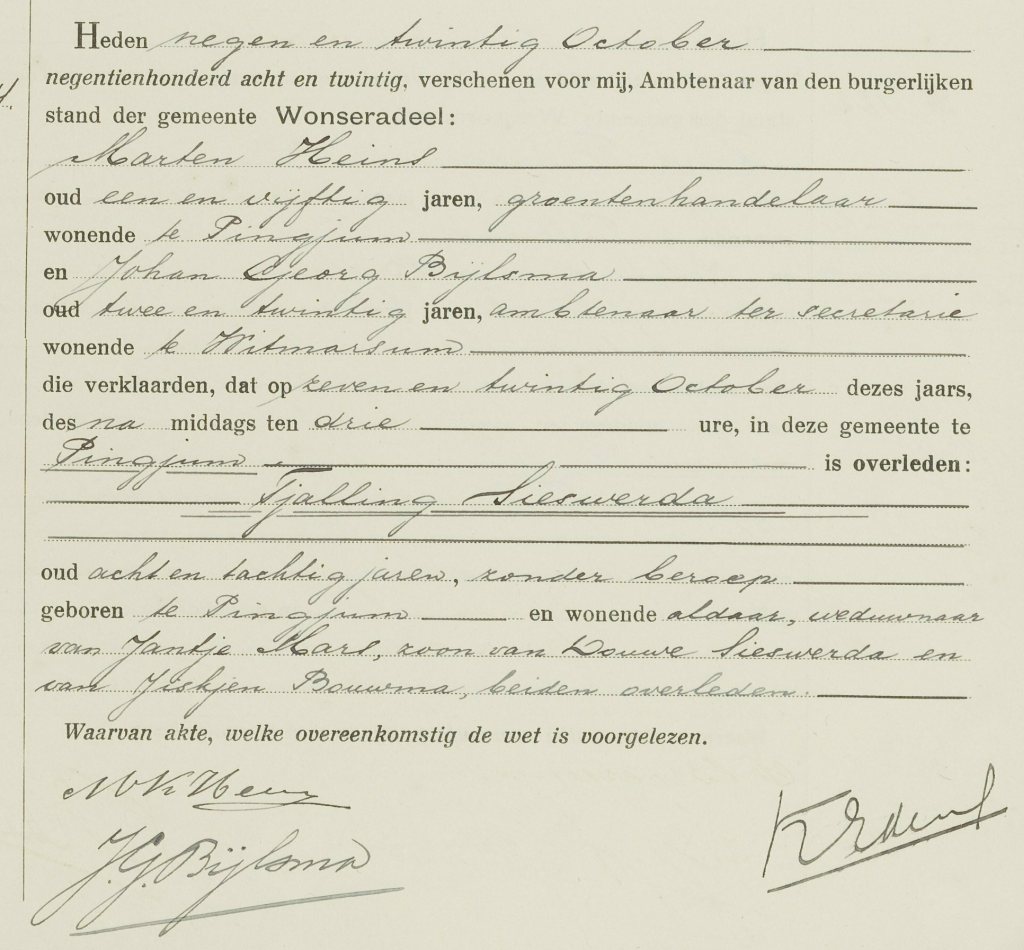 Heden negen en twintig October
negentienhonderd acht en twintig, verschenen voor mij, Ambtenaar van den burgerlijken
stand der gemeente Wonseradeel:
Marten Heins
oud een en vijftig jaren, groentenhandelaar
wonende te Pingjum
en Johan Georg Bijlsma
oud twee en twintig jaren, ambtenaar ter secretarie
wonende te Witmarsum
die verklaarden, dat op zeven en twintig October dezes jaars,
des na middags ten drie ure, in deze gemeente te
Pingjum is overleden:
Tjalling Sieswerda
oud acht en tachtig jaren, zonder beroep
geboren te Pingjum en wonende aldaar, weduwnaar
van Jantje Mars, zoon van Douwe Sieswerda en
van Jiskjen Bouwma, beiden overleden.
Waarvan akte, welke overeenkomstig de wet is voorgelezen.
J.G. Bijlsma